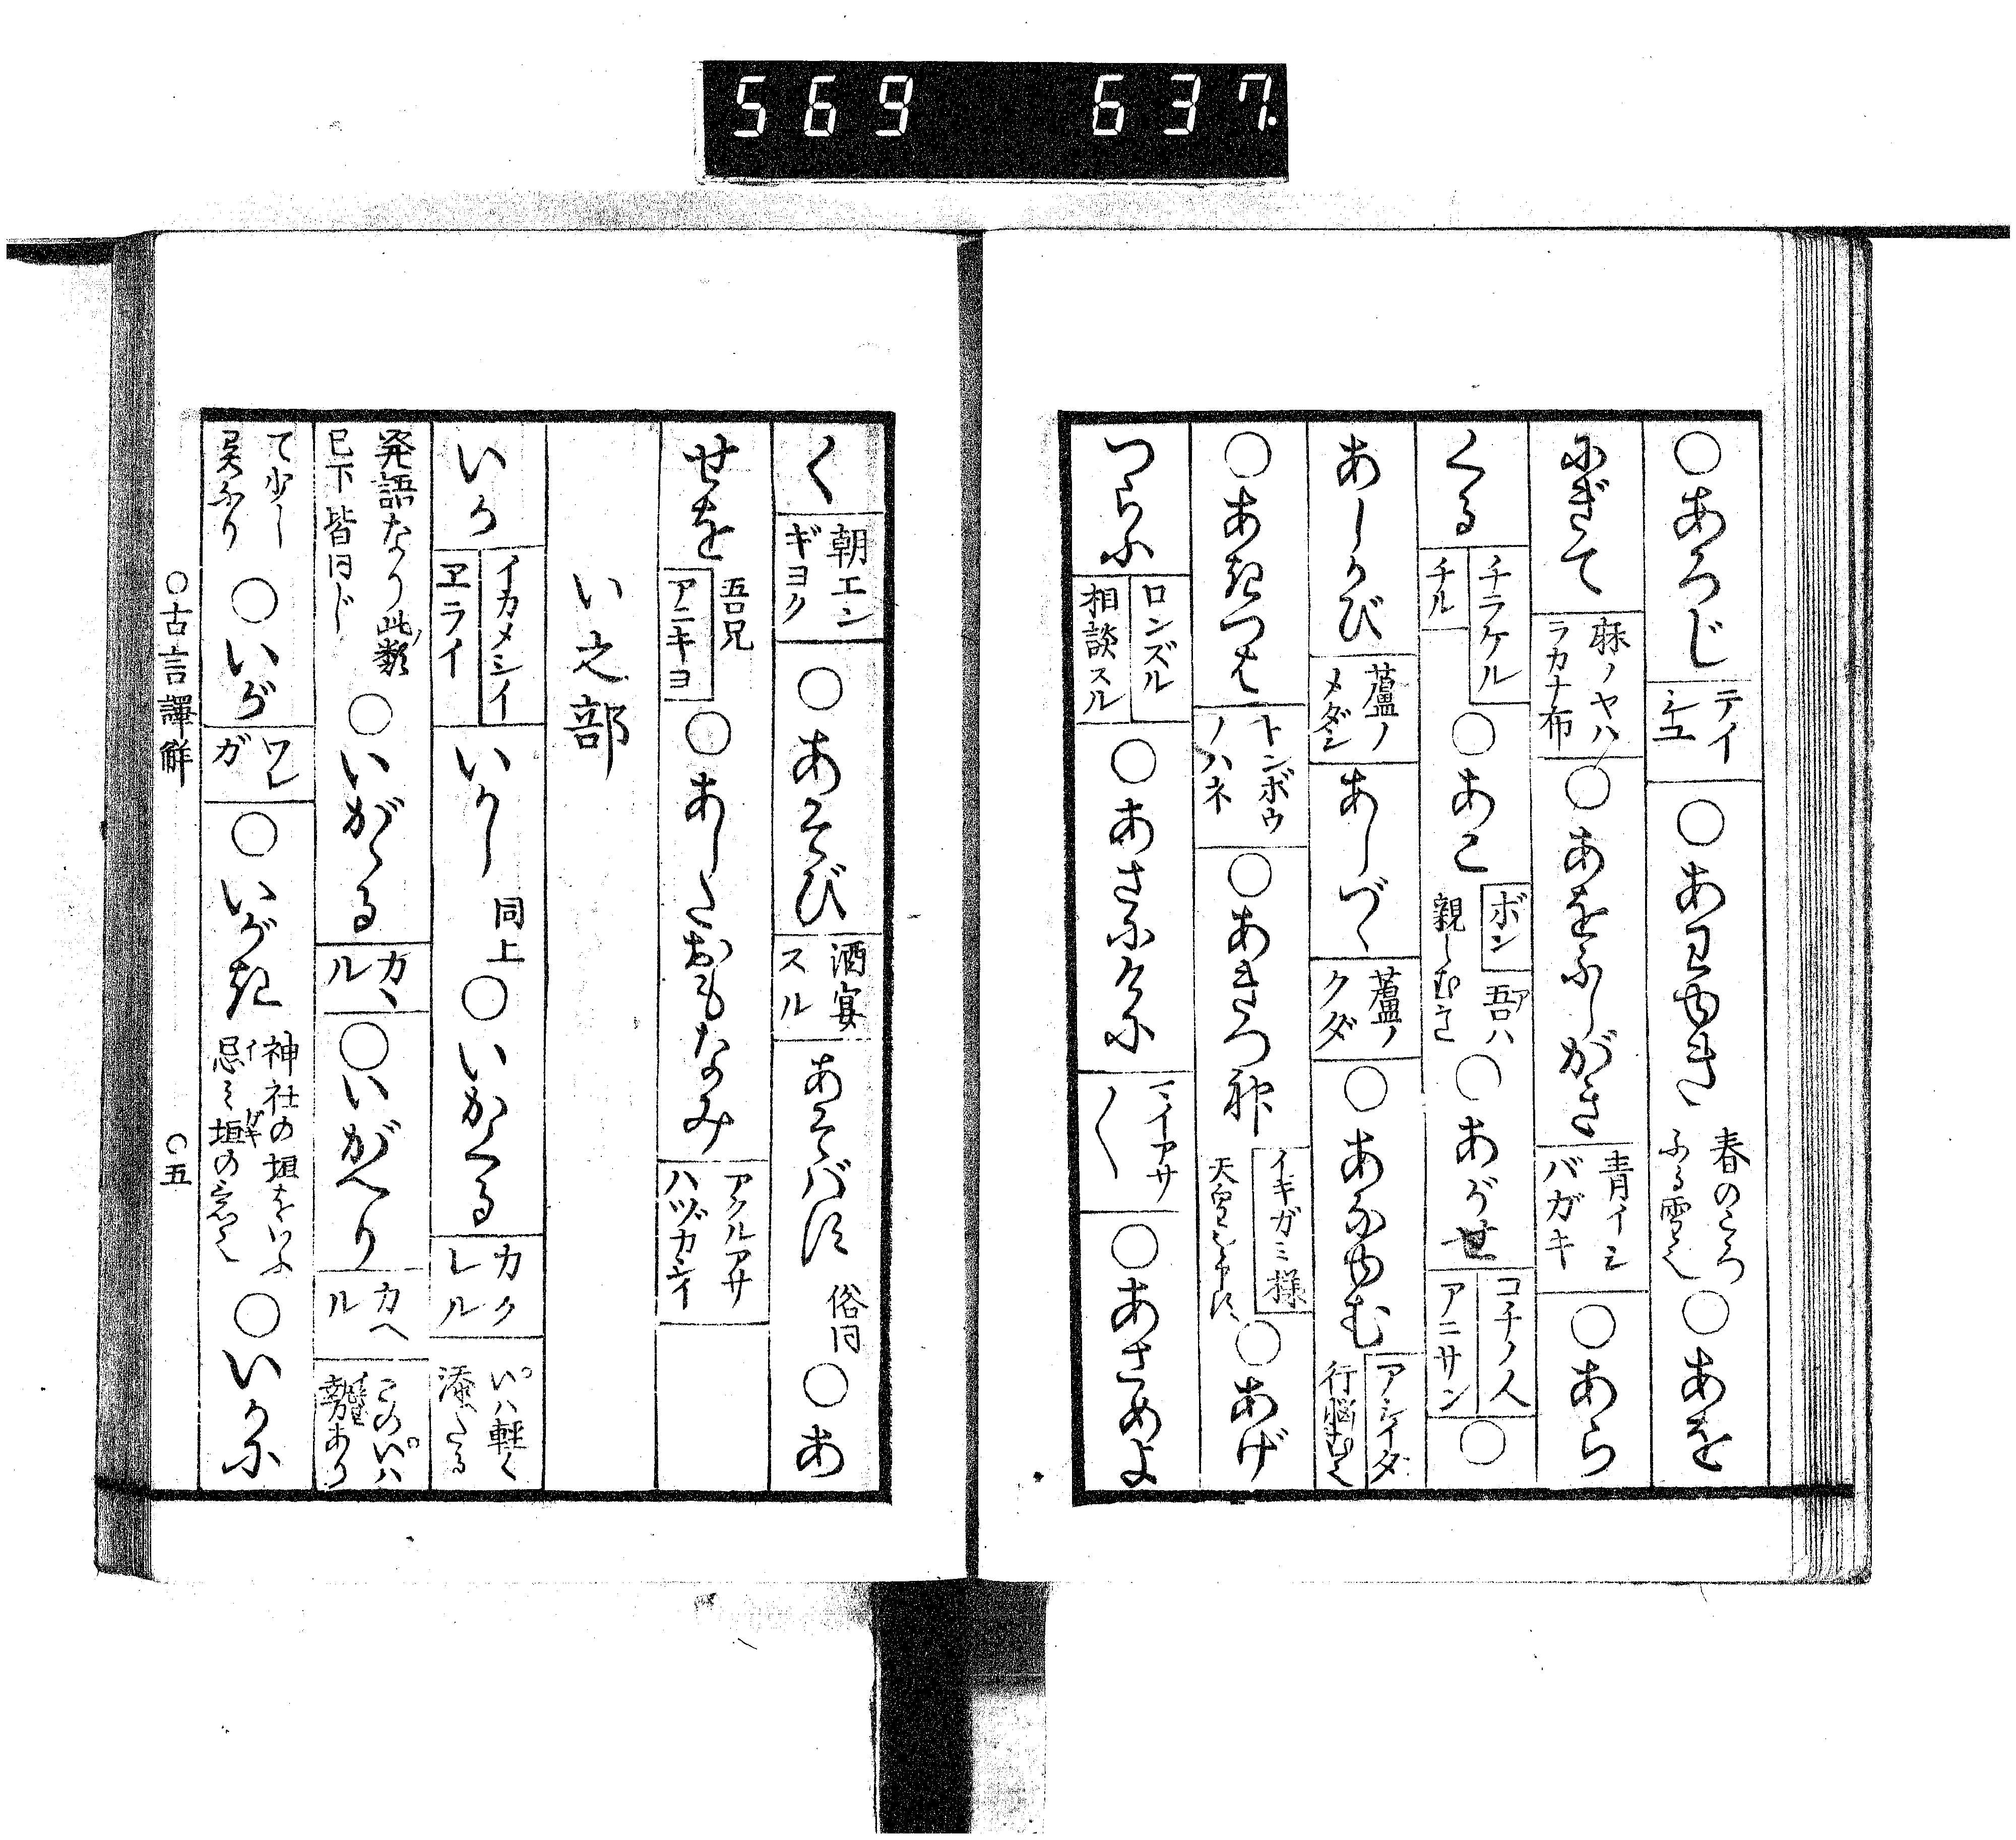 569 637.
○あろじ テイシユ ○あわゆき 春のころふる雪也 ○あを
にぎて 麻ノヤハラカナ布 ○あをふしがき 青イシバガキ ○あら
くる チラケル チル ○あこ ボン 吾ハ親しむこと ○あがせ コチノ人 アニサン ○
あしかび 蘆ノメダシ あしづゝ 蘆ノクダ ○あなゆむ アシイタ 行悩む也
○あきつは トンボウノハネ ○あきつ神 イキガミ様 天皇を申す ○あげ
つらふ ロンズル 相談スル ○あさにけに マイアサ〱 ○あさめよ
く 朝エンギヨク ○あそび 酒宴スル あそばす 俗同 ○あ
せを 吾兄 アニキヨ ○あしたおもなみ アクルアサハヅカシイ
い之部
いか イカメシイ ヱライ いかし 同上 ○いかくる カクレル いハ軽く添たる
発語なり此類已下皆同じ ○いがゝる カヽル ○いがへり カヘル このいハ勢あり
て少し異なり ○いが ワレガ ○いがき 神社の垣をいふ忌ミ垣の意也 ○いかに
○古言譯解 ○五